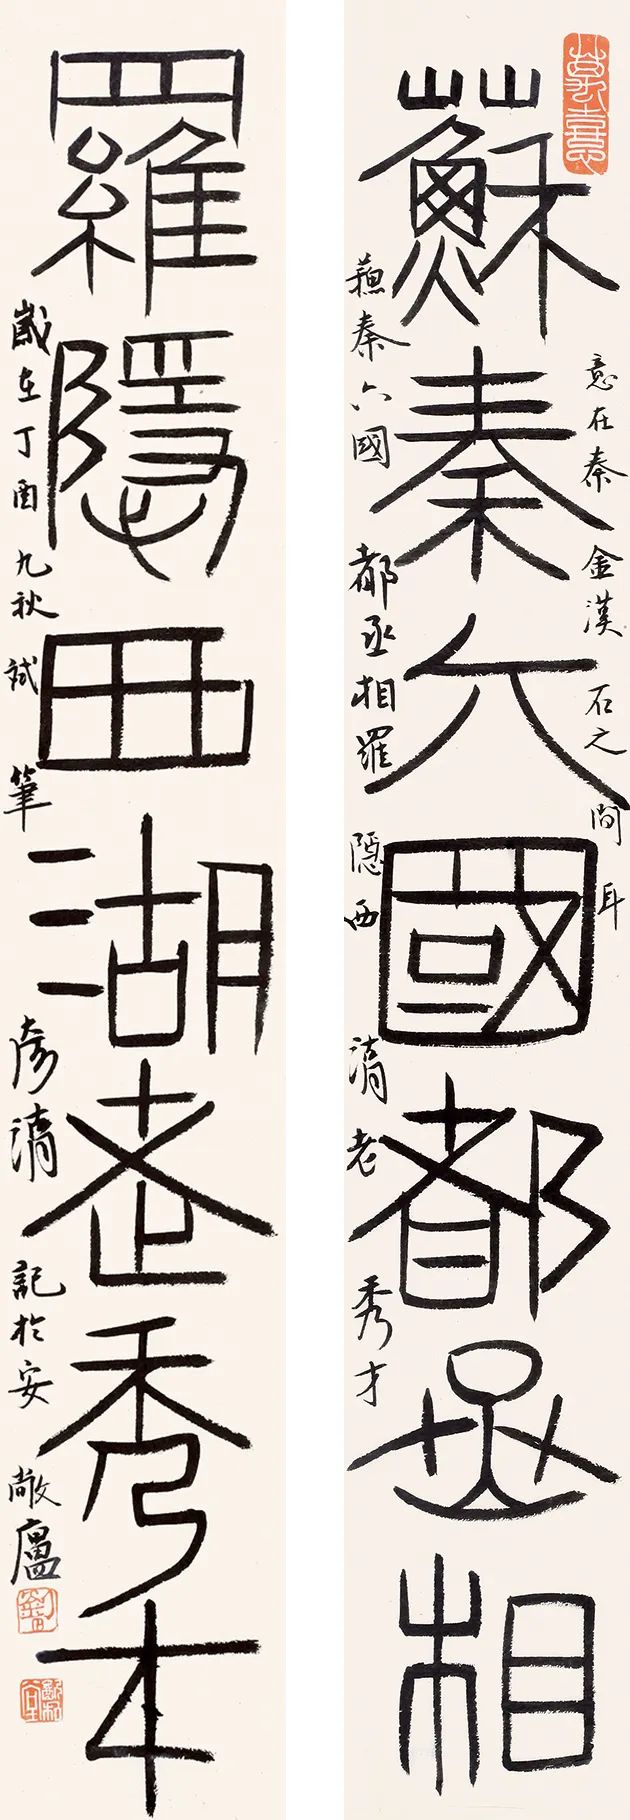 蘇秦六國都丞相
意在秦金漢石之間耳
蘓秦六國都丞相羅隱西湖老秀才
羅隱西湖老秀才
歲在丁酉九秋試筆彦湖記於安敞廬